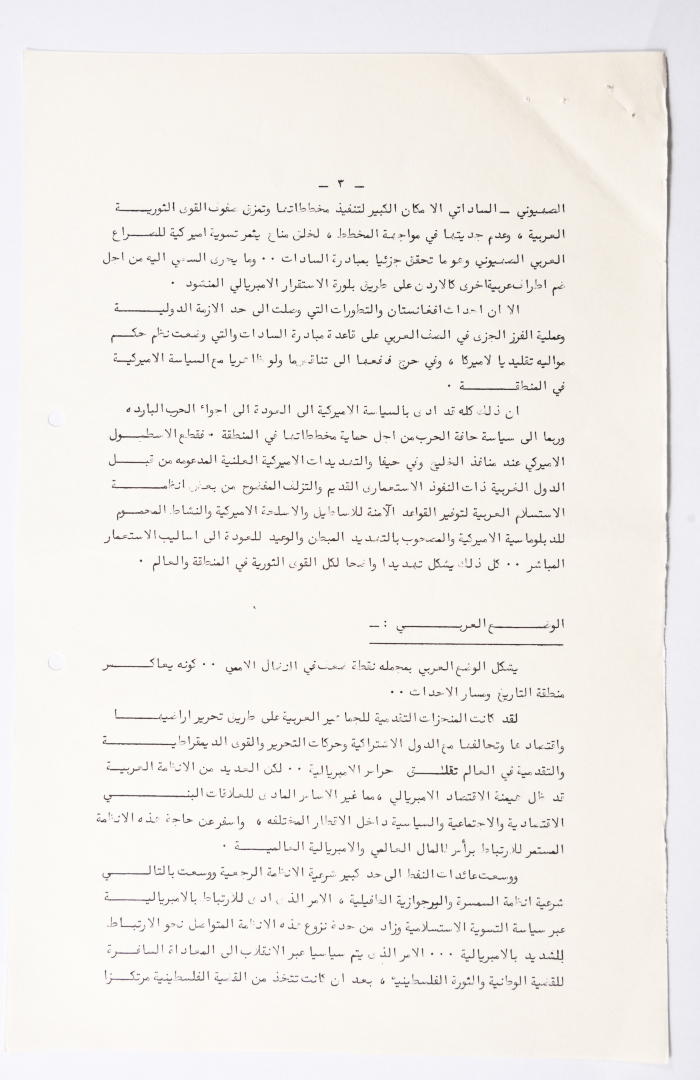 — ٣ —
الصهيوني — الساداتي الامكان الكبير لتنفيذ مخططاتها وتمزق صفوف القوى الثوريـــة
العربية ، وعدم جديتها في مواجهة المخطط ، لخلق مناخ يثمر تسوية اميركية للصـــراع
العربي الصهيوني وهو ما تحقق جزئيا بمبادرة السادات ٠٠ وما يجرى السعي اليه من اجل
ضم اطراف عربية اخرى كالاردن على طريق بلورة الاستقرار الامبريالي المنشود ٠
الا ان احداث افغانستان والتطورات التي وصلت الى حد الازمة الدوليـــة
وعملية الفرز الجزى في الصف العربي على قاعدة مبادرة السادات والتي وضعت نظم حكـم
مواليه تقليديا لاميركا ، وفي حرج دفعها الى تناقضها ولو ظاهريا مع السياسة الاميركيـة
في المنطقـــــــة ٠
ان ذلك كله قد ادى بالسياسة الاميركية الى العودة الى اجواء الحرب البارده
وربما الى سياسة حافة الحرب من اجل حماية مخططاتها في المنطقة ٠ فقطع الاسطـــول
الاميركي عند منافذ الخليج وفي حيفا والتهديدات الاميركية العلنية المدعومه من قبـــل
الدول الغربية ذات النفوذ الاستعمارى القديم والتزلف المفضوح من بعض انظمـــة
الاستسلام العربية لتوفير القواعد الآمنة للاساطيل والاسلحة الاميركية والنشاط المحمـوم
للدبلوماسية الاميركية والمصحوب بالتهديد المبطن والوعيد للعودة الى اساليب الاستعمار
المباشر ٠٠ كل ذلك يشكل تهديدا واضحا لكل القوى الثورية في المنطقة والعالم ٠
الوضـــــــع العربـــــــــي : ــ
يشكل الوضع العربي بمجمله نقطة ضعف في النضال الاممي ٠٠ كونه يعاكـــــر
منطقة التاريخ ومسار الاحداث ٠٠
لقد كانت المنجزات التقدمية للجماهير العربية على طريق تحرير اراضيهـــا
واقتصادها وتحالفها مع الدول الاشتراكية وحركات التحرير والقوى الديمقراطيـــة
والتقدمية في العالم تقلـــق حراس الامبريالية ٠٠ لكن العديد من الانظمة العربيـــة
قد ظل هيمنة الاقتصاد الامبريالي ، مما غير الاساس المادى للعلاقات البنـــــي
الاقتصادية والاجتماعية والسياسية داخل الاقطار المختلفه ، واسفر عن حاجة هذه الانظمـة
المستمر للارتباط برأس المال العالمي والامبريالية العالميـــــة ٠
ووسعت عائدات النفط الى حد كبير شرعية الانظمة الرجعية ووسعت بالتالـــــي
شرعية انظمة السمسرة والبرجوازية الطفيلية ، الامر الذى ادى للارتباط بالامبرياليـــة
عبر سياسة التسوية الاستسلامية وزاد من حدة نزوع هذه الانظمة المتواصل نحو الارتبـاط
الشديد بالامبريالية ٠٠٠ الامر الذى يتم سياسيا عبر الانقلاب الى المعاداة السافــرة
للقضية الوطنية والثورة الفلسطينية ، بعد ان كانت تتخذ من القضية الفلسطينية مرتكـزا